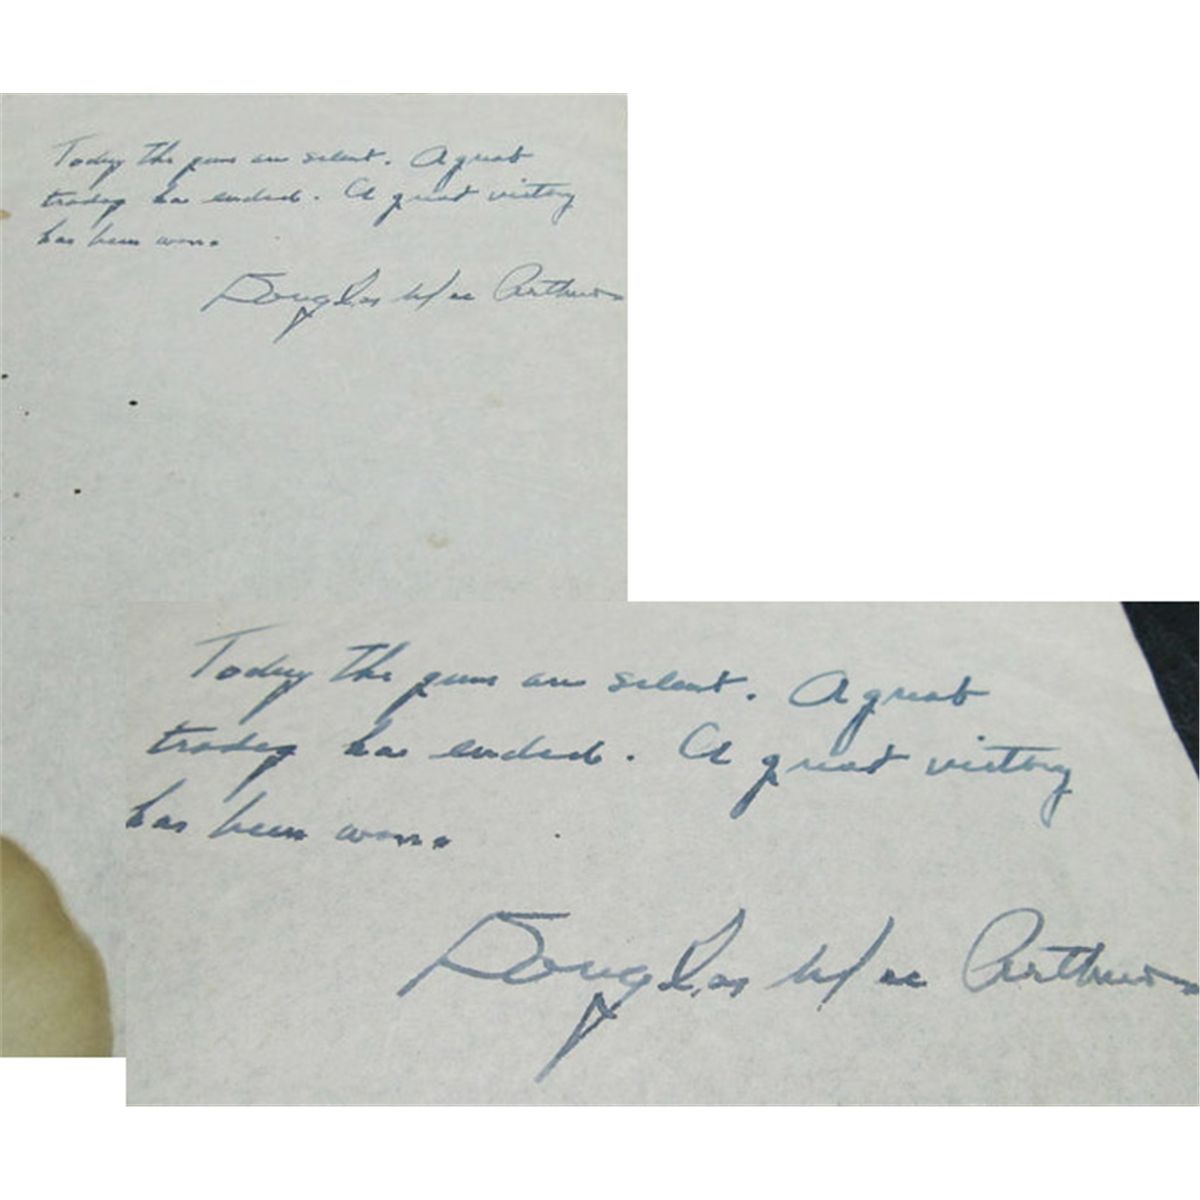 Today the guns are silent. A great
tragedy has ended. A great victory
has been won.
Douglas MacArthur
Today the guns are silent. A great
tragedy has ended. A great victory
has been won.
Douglas MacArthur